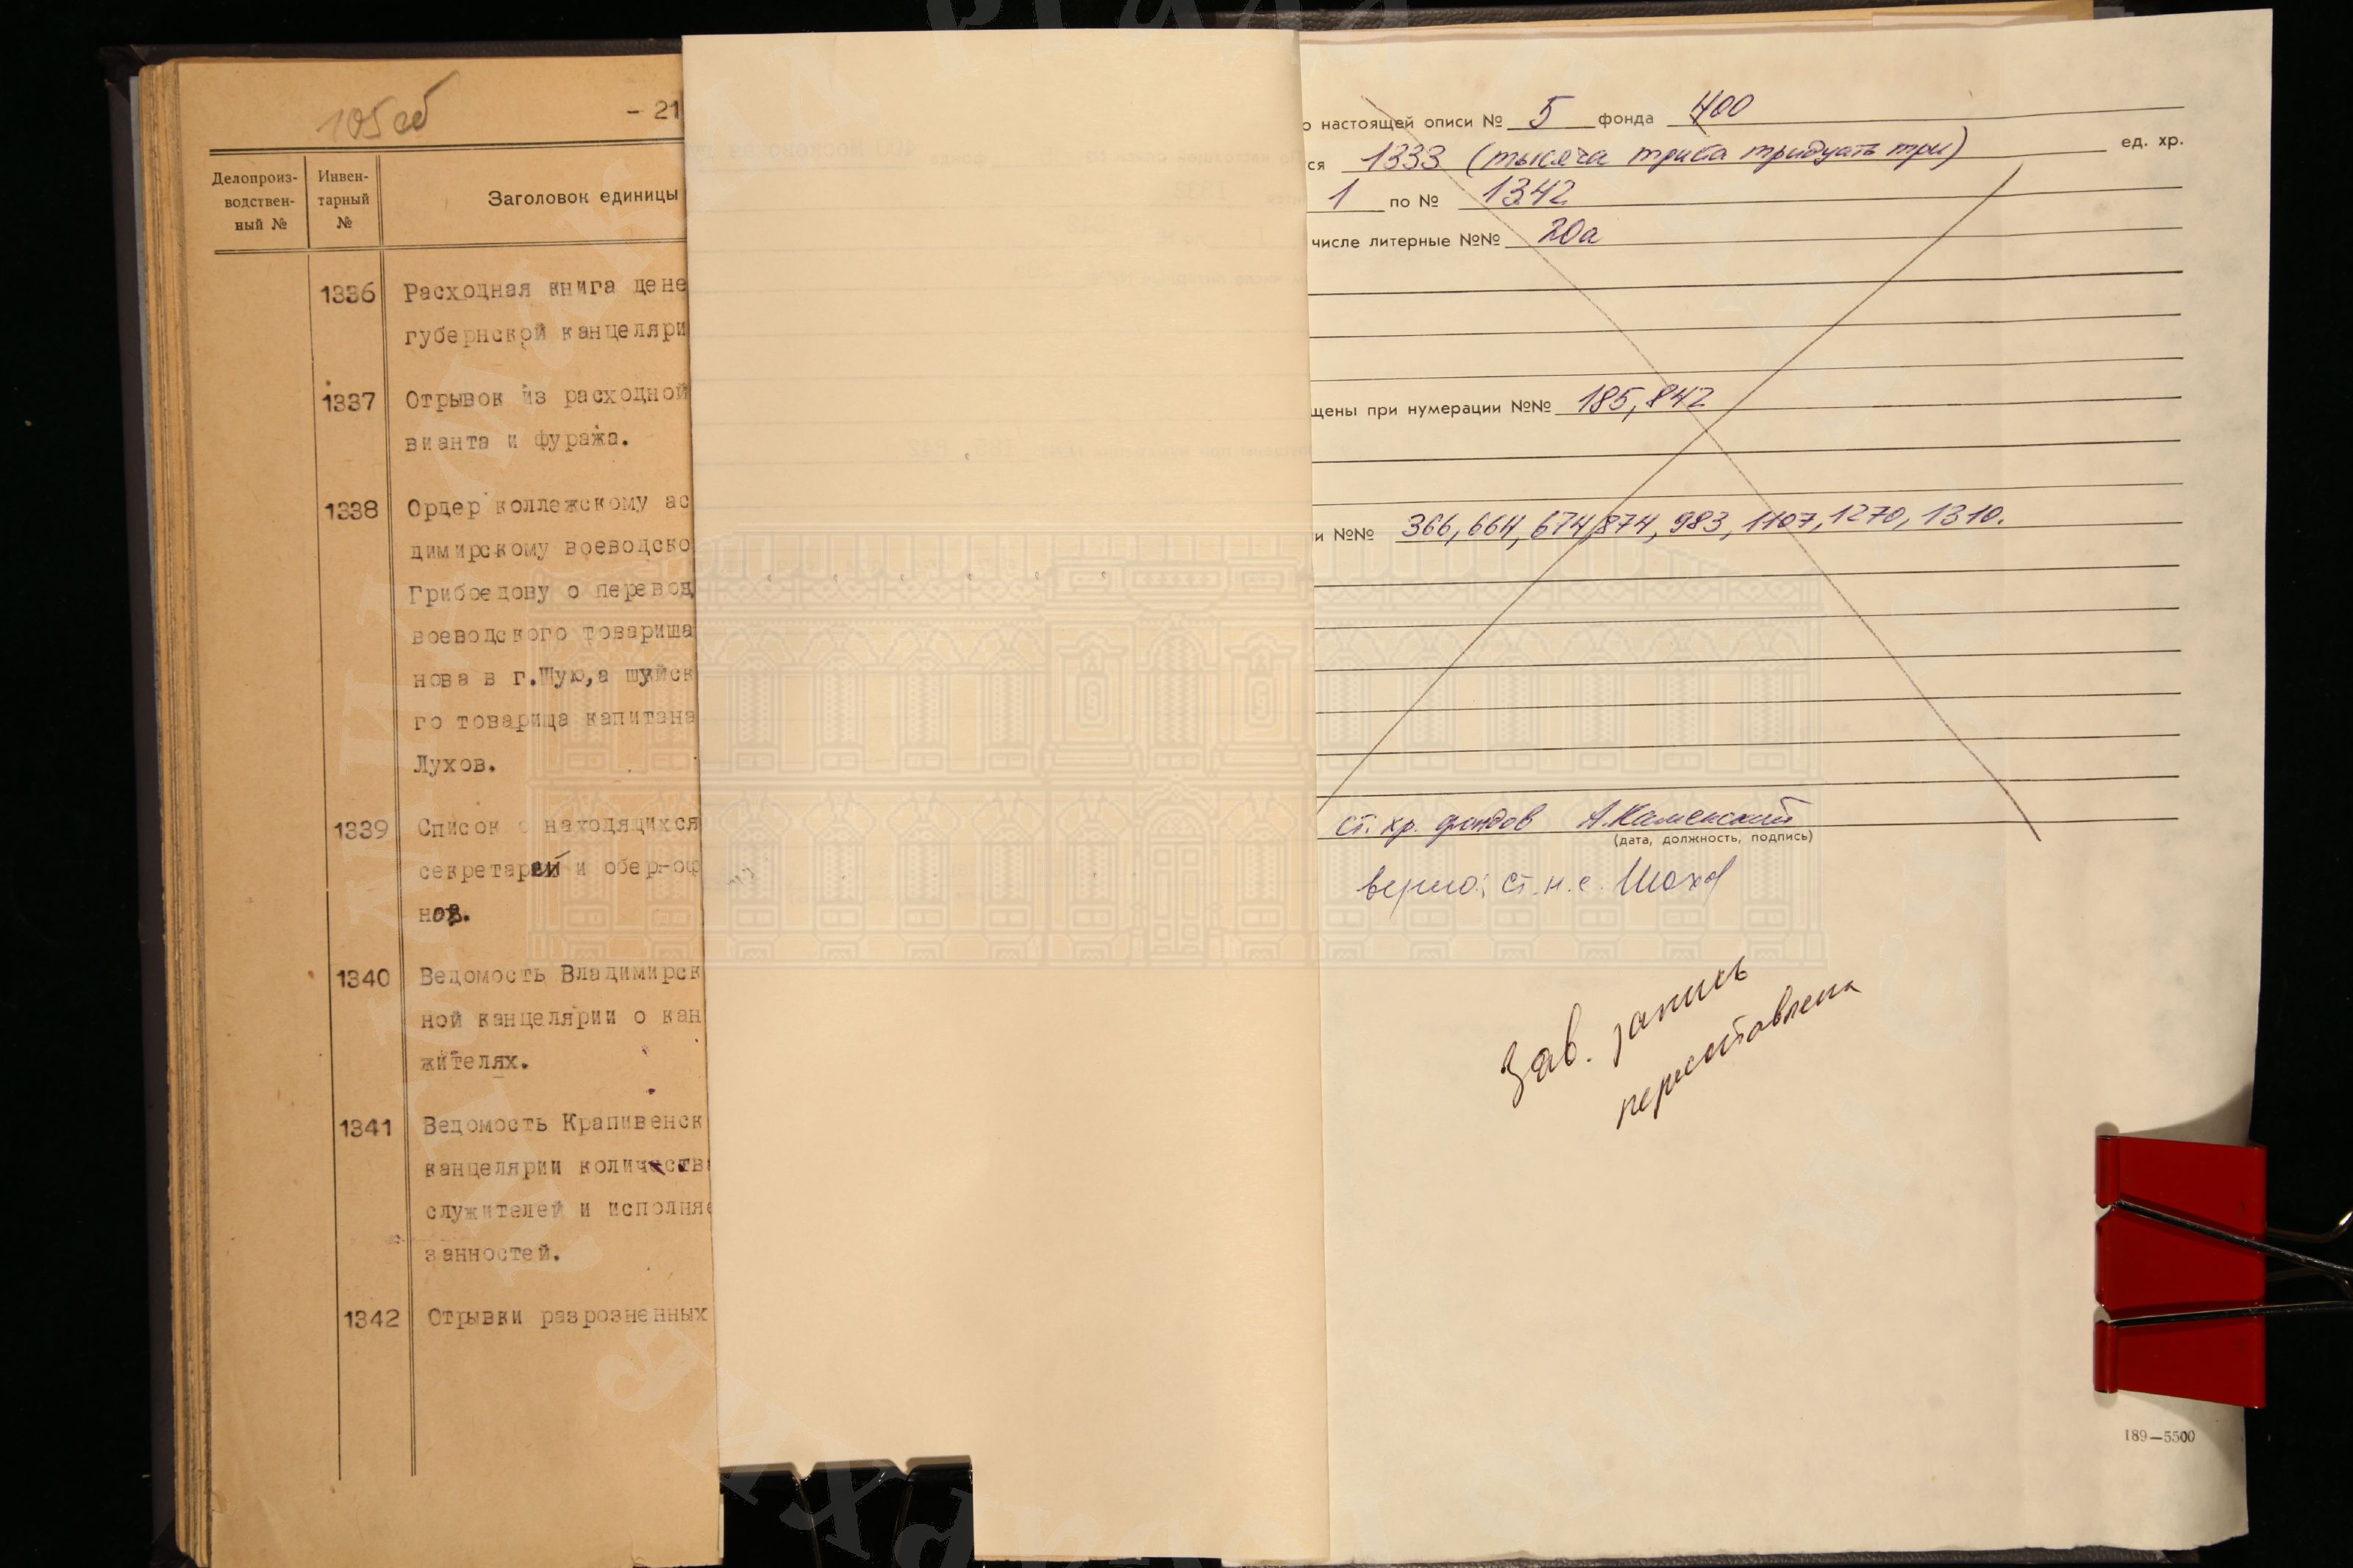 105об
- 21
Делопроиз-
водствен-
ный №
Инвен-
тарный
№
Заголовок единицы
1336 Расходная книга дене
губернской канцеляри
1337 Отрывок из расходной
вианта и фуража.
1338 Ордер коллежскому ас
димирскому воеводско
Грибоедову о перевод
воеводского товарища
нова в г.Шую,а шуйск
го товарища капитана
Лухов.
1339 Список о находящихся
секретарей и обер-оф
нов.
1340 Ведомость Владимирск
ной канцелярии о кан
жителях.
1341 Ведомость Крапивенск
канцелярии количеств
служителей и исполня
занностей.
1342 Отрывки разрозненных
о настоящей описи № 5 фонда 400
ся 1333 (тысяча триста тридцать три) ед. хр.
1 по № 1342
числе литерные №№ 20а
щены при нумерации №№ 185, 842
и №№ 366, 664, 674, 874, 983, 1107, 1270, 1310.
ст. хр. фондов А.Каменский
(дата, должность, подпись)
верно: ст. н. с. Шохов
Зав. запись
пересоставлена
189—5500